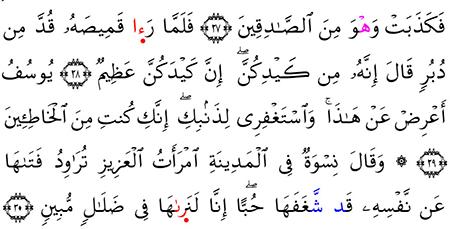 فَكَذَبَتْ وَهْوَ مِنَ ٱلصَّٰدِقِينَ ﴿٢٧﴾ فَلَمَّا رَءا قَمِيصَهُۥ قُدَّ مِن
دُبُرٍ قَالَ إِنَّهُۥ مِن كَيْدِكُنَّۖ إِنَّ كَيْدَكُنَّ عَظِيمٌ ﴿٢٨﴾ يُوسُفُ
أَعْرِضْ عَنْ هَٰذَاۚ وَٱسْتَغْفِرِى لِذَنۢبِكِۖ إِنَّكِ كُنتِ مِنَ ٱلْخَاطِـِٔينَ
﴿٢٩﴾ ۞ وَقَالَ نِسْوَةٌ فِى ٱلْمَدِينَةِ ٱمْرَأَتُ ٱلْعَزِيزِ تُرَٰوِدُ فَتَىٰهَا
عَن نَّفْسِهِۦ قَد شَّغَفَهَا حُبًّاۖ إِنَّا لَنَر۪ىٰهَا فِى ضَلَٰلٍ مُّبِينٍ ﴿٣٠﴾